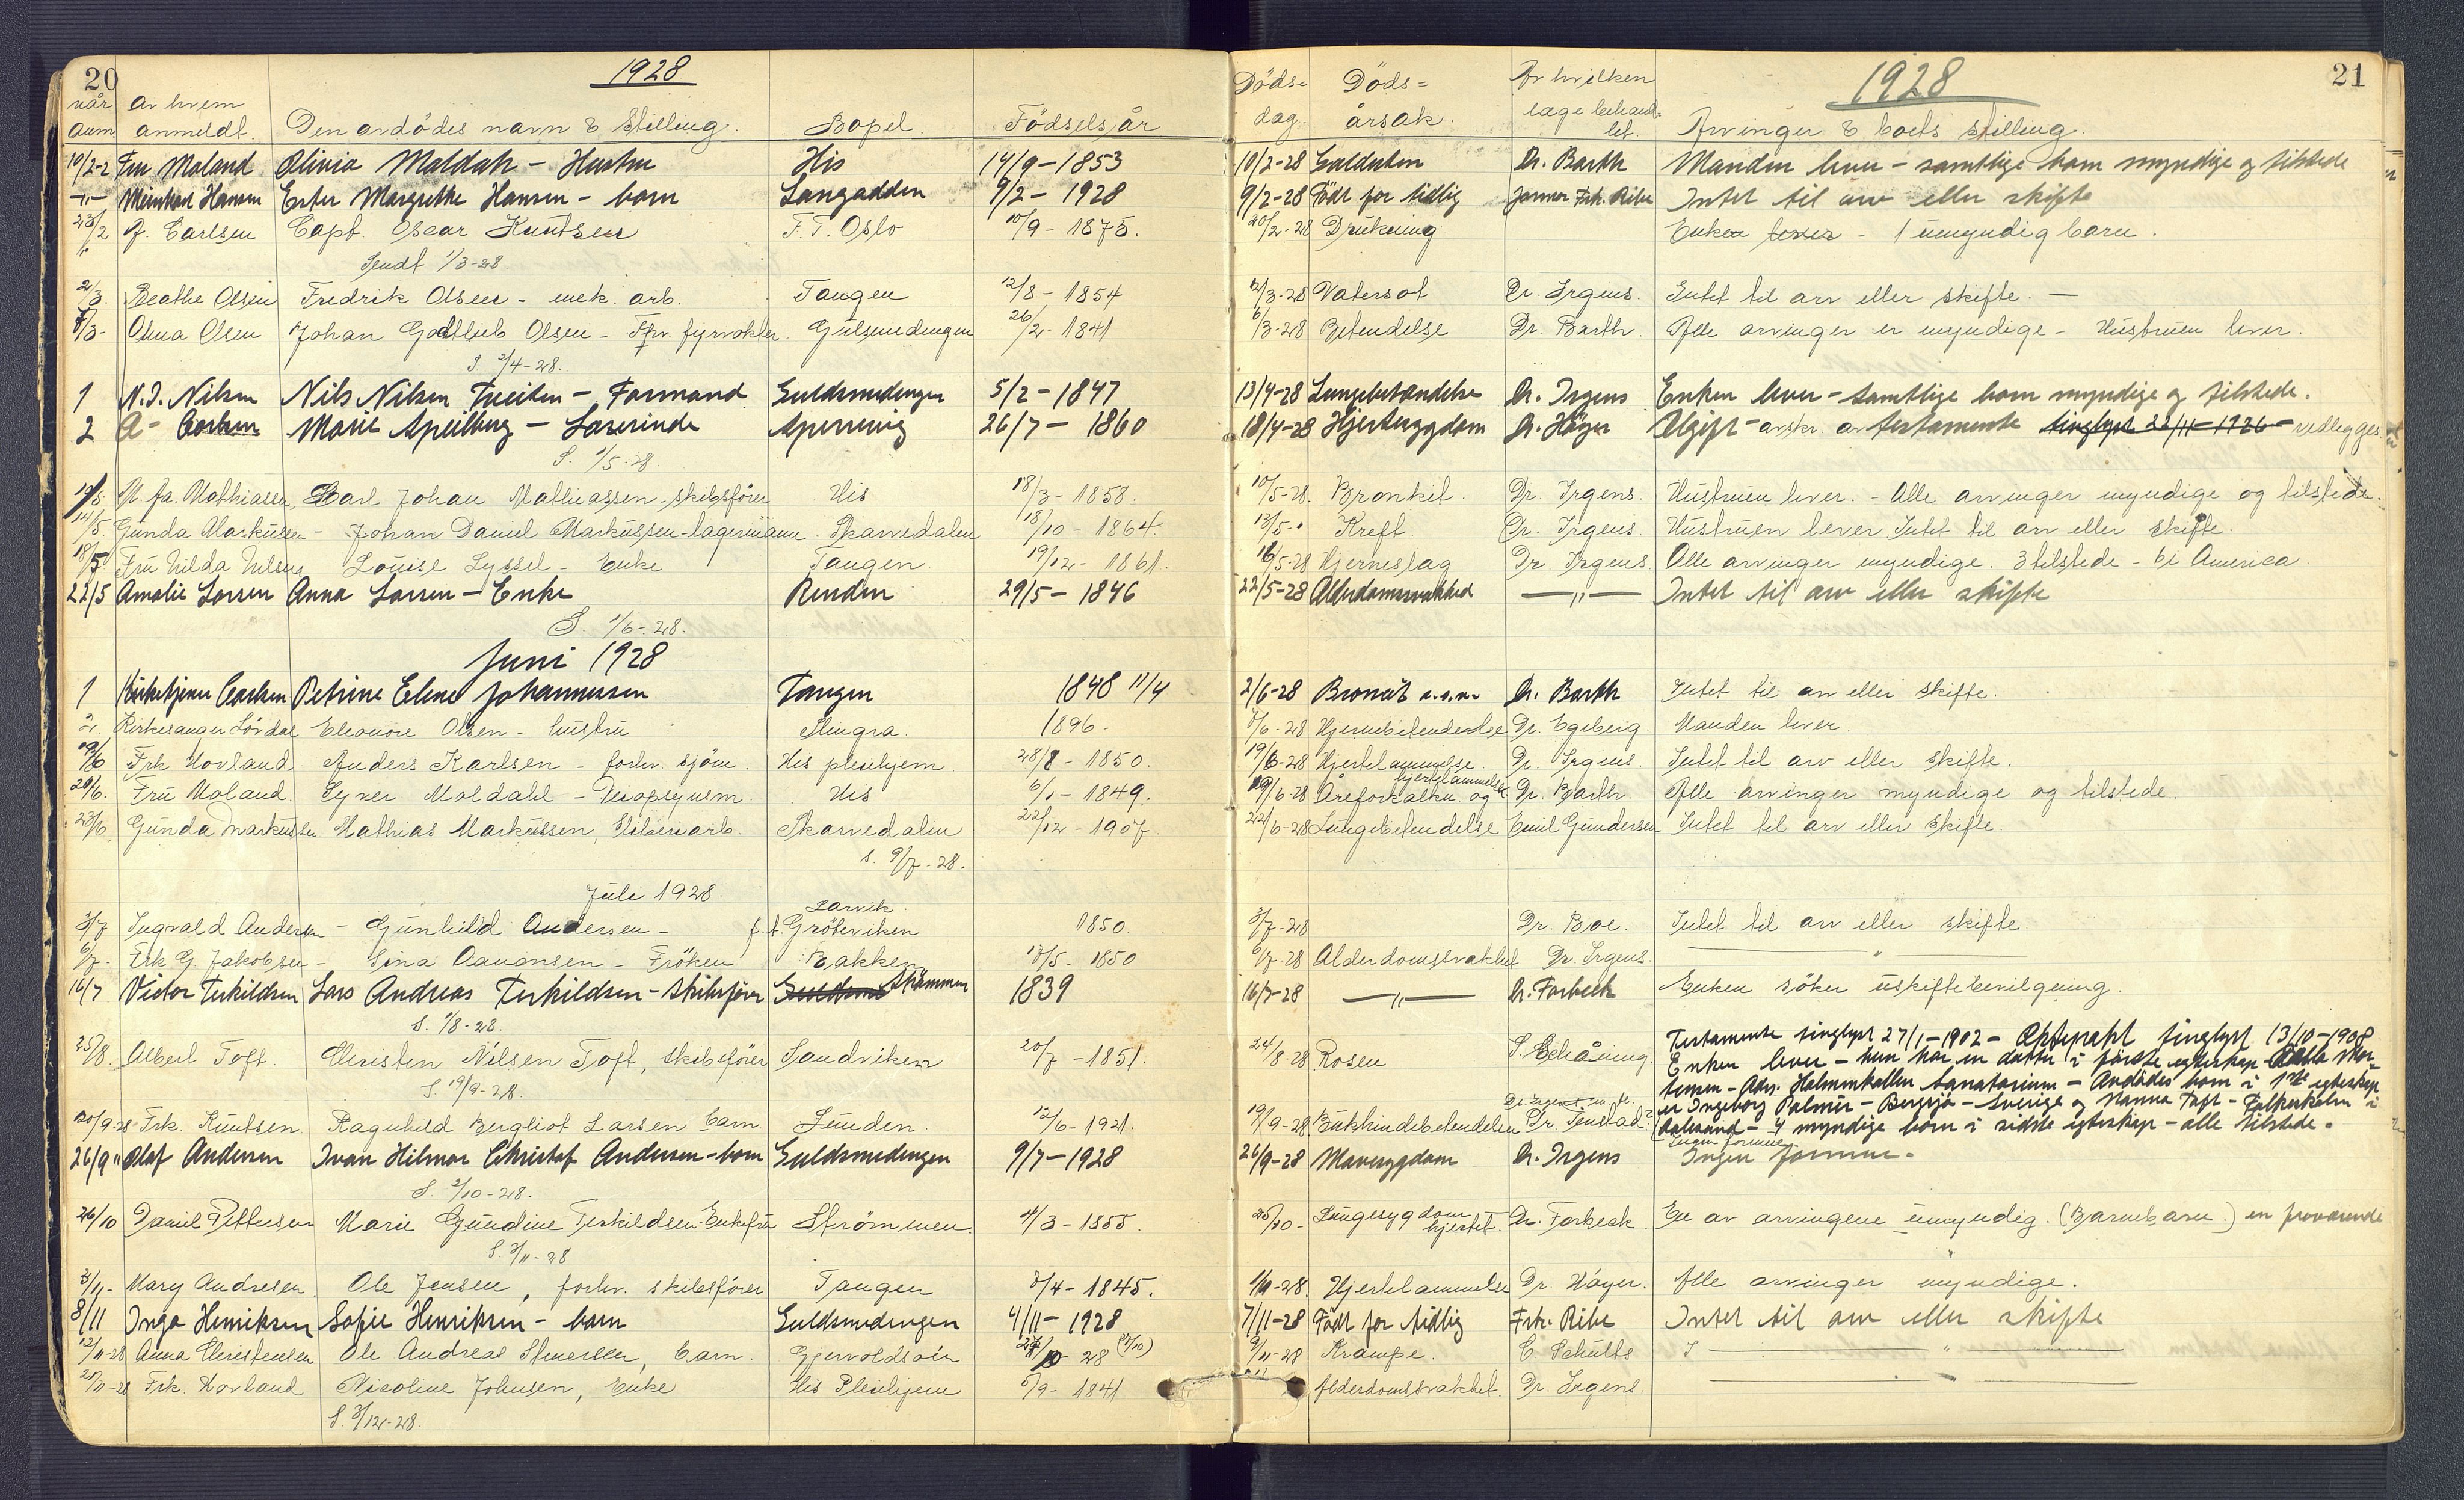 20
1928
når anm. av hvem anmeldt. Den avdödes navn & Stilling. Bopel. Födselsår
10/2-2 Fru Moland Olivia Moldah - Hustru His 14/9-1853
-"- Meinhart Hansen Ester Margrethe Hansen - barn Langodden 9/2 - 1928
23/2 A. Carlsen Capt. Oscar Knutsen F. T. Oslo 10/9 - 1875.
Sendt 1/3-28
2/3. Beathe Olsen Fredrik Olsen - mek. arb. Tangen 12/8 - 1854
7/3- Olma Olsen Johan Godtlieb Olsen - Fhv. fyrvokter. Gulsmedengen 26/2 - 1841
S. 2/4-28.
1 N. J. Nilsen Nils Nilsen Tveiten - Formand Guldsmedengen 5/2 - 1847
2 A- Carlsen Marie Speilberg - Lærerinde Sperrevig 26/7 - 1860
S. 1/5-28.
10/5. M. fa. Mathiasen, Karl Johan Mathiassen - skibsförer His 18/3 - 1858.
14/5. Gunda Markusen - Johan Daniel Markussen - lagermann. Skarvedalen 18/10 - 1864.
18/5 Fru Hilda Nilsen Louise Syssel - Enke Tangen. 19/12 - 1861.
22/5 Amalie Larsen Anna Larsen - Enke Renden 29/5 - 1846
S. 1/6-28.
Juni 1928
1 Kirketjener Carlsen Petrine Elene Johannessen Tangen 1848 11/4
2. Kirkesanger Lövdal Eleonore Olsen - hustru Slingra. 1896.
19/6 Frk Hovland Anders Karlsen - forhv. sjöm. His pleiehjem 28/8 - 1850.
20/6. Fru Moland. Syver Moldahl - Decopsynsm. His 6/1 - 1849.
23/6 Gunda Markussen Mathias Markussen, Sliperiarb. Skarvedalen 22/12 - 1907.
S. 9/7-28.
Juli 1928.
3/7 Ingvald Andersen - Gunhild Andersen - f. t. Larvik. Gröterviken 1850.
6/7. Frk G. Jakobsen - Sina Aanonsen - Fröken Bakken 13/5. 1850
16/7 Victor Terkildsen Lars Andreas Terkildsen - skibsförer Strömmen 1839
S. 1/8-28.
25/8 Albert Toft. Christen Nilsen Toft, skibsförer Sandviken 20/7 - 1851.
S. 19/9-28.
20/9-28 Frk. Knutsen Ragnhild Bergliot Larsen barn Lunden. 12/6 - 1921.
26/9 " Olaf Andersen Ivan Hilmar Christof Andersen - barn Guldsmedengen 9/7 - 1928
S. 2/10-28.
26/10 Daniel Pettersen Marie Gundine Terkildsen - Enkefru Strömmen. 4/3 - 1855.
S. 3/11-28
3/11- Mary Andresen. Ole Jensen, forhv. skibsförer Tangen 3/4 - 1845.
8/11 Inga Henriksen Sofie Henriksen - barn Guldsmedengen 4/11 - 1928
12/11-28 Anna Christensen Ole Andreas barn. Gjervoldsöen 10 28
Frk. Hovland Nicoline Johnsen, Enke His Pleiehjem 5/9 - 1841
S. 3/12-28.
21
1928
Döds= dag. Döds= årsak. Av hvilken læge behandlet. Arvinger & boets stilling.
10/2-28 Galdesten Dr. Barth Manden lever - samtlige barn myndige og tilstede
9/2-28 Födt for tidlig Jormor Frk. Ribe Intet til arv eller skifte
20/2-28 Drukning Enken lever - 1 umyndig barn.
2/3-28 Vatersot Dr. Irgens. Intet til arv eller skifte. -
6/3-28 Betendelse Dr. Barth. Alle arvinger er myndige - Hustruen lever.
13/4-28 Lungebetændelse Dr. Irgens Enken lever - samtlige barn myndige og tilstede.
18/4-28 Hjertesygdom Dr. Höyer Ugift - avskr. av testamente tinglyst 22/11-1926 - vedlegges
10/5-28. Bronkit. Dr. Irgens. Hustruen lever. - Alle arvinger myndige og tilstede.
13/5-" Kreft. Dr. Irgens. Hustruen lever. Intet til arv eller skifte.
16/5-28 Hjerneslag Dr Irgens. Alle arvinger myndige. 3 tilstede - 6 i America.
22/5-28 Alderdomssvakhed -"- Intet til arv eller skifte
2/6-28 Dr. Barth Intet til arv eller skifte.
7/6-28 Hjernebetendelse Dr. Egeberg Manden lever.
19/6-28 Hjertelammelse. Dr. Irgens. Intet til arv eller skifte.
19/6-28 Åreforkalkn. og hjertelammelse. Dr. Barth. Alle arvinger myndige og tilstede.
22/6-28 Lungebetendelse Emil Gundersen Intet til arv eller skifte.
3/7-28 Dr. Boe. Intet til arv eller skifte.
6/7-28 Alderdomssvakhet Dr. Irgens. -"-
16/7-28 -"- Dr. Forbech Enken söker uskiftebevilgning.
24/8-28 Rosen S. Schåning.
Testamente tinglyst 27/1-1902 - Ektepakt tinglyst 13/10-1908
Enken lever - hun har en datter i förste egteskap -
- Adr. Holmenkollen Sanatorium - Avdödes barn i 1ste egteskap
er Ingeborg Palmér - Bergsjö - Sverige og Nanna Toft -
- 4 myndige barn i sidste egteskap - alle tilstede.
19/9-28 Bukhindebetendelse Dr. Tenstad? Ingen formue.
26/9-28 Mavesygdom Dr. Irgens Ingen formue.
25/10- Lungesygdom hjertet. Dr. Forbech. En av arvingene umyndig. (Barnebarn.) en fraværende
1/11-28. Hjertelammelse Dr. Höyer. Alle arvinger myndige.
7/11-28 Födt for tidlig Frk. Ribe Intet til arv eller skifte
9/11-28 Krampe. C. Schults I -"-
Alderdomssvakhet. Dr. Irgens. -"-